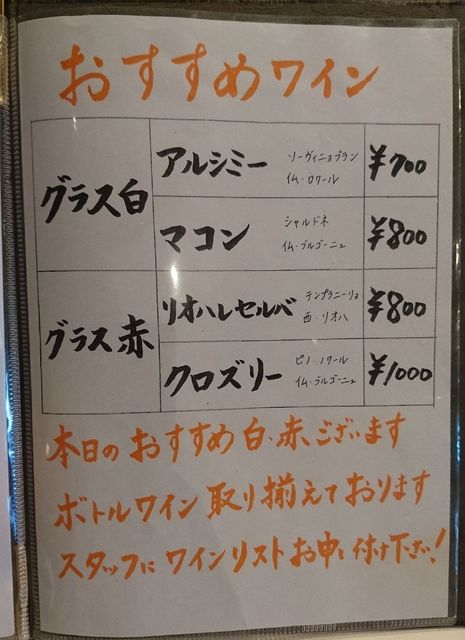 おすすめワイン
グラス白
アルシミー
ソーヴィニョブラン
仏・ロワール
¥700
マコン
シャルドネ
仏・ブルゴーニュ
¥800
グラス赤
リオハレセルバ
テンプラニーリョ
西・リオハ
¥800
クロズリー
ピノ・ノワール
仏・ブルゴーニュ
¥1000
本日のおすすめ白・赤ございます
ボトルワイン取り揃えております
スタッフにワインリストお申し付け下さい!